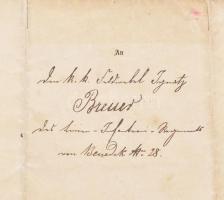 An
den k. k. Feldwebel Ignatz
Breuer
des Linien-Infanterie-Regiments
von Benedek № 28.